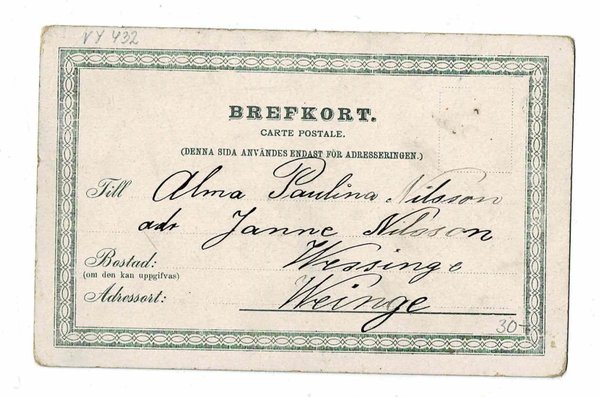 VY 432
BREFKORT.
CARTE POSTALE.
(DENNA SIDA ANVÄNDES ENDAST FÖR ADRESSERINGEN.)
Till Alma Paulina Nilsson
adr Janne Nilsson
Bostad: Wessinge
(om den kan uppgifvas)
Adressort: Weinge
30-